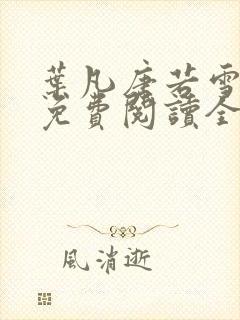 葉凡唐若雪
免費閱讀全
風消逝